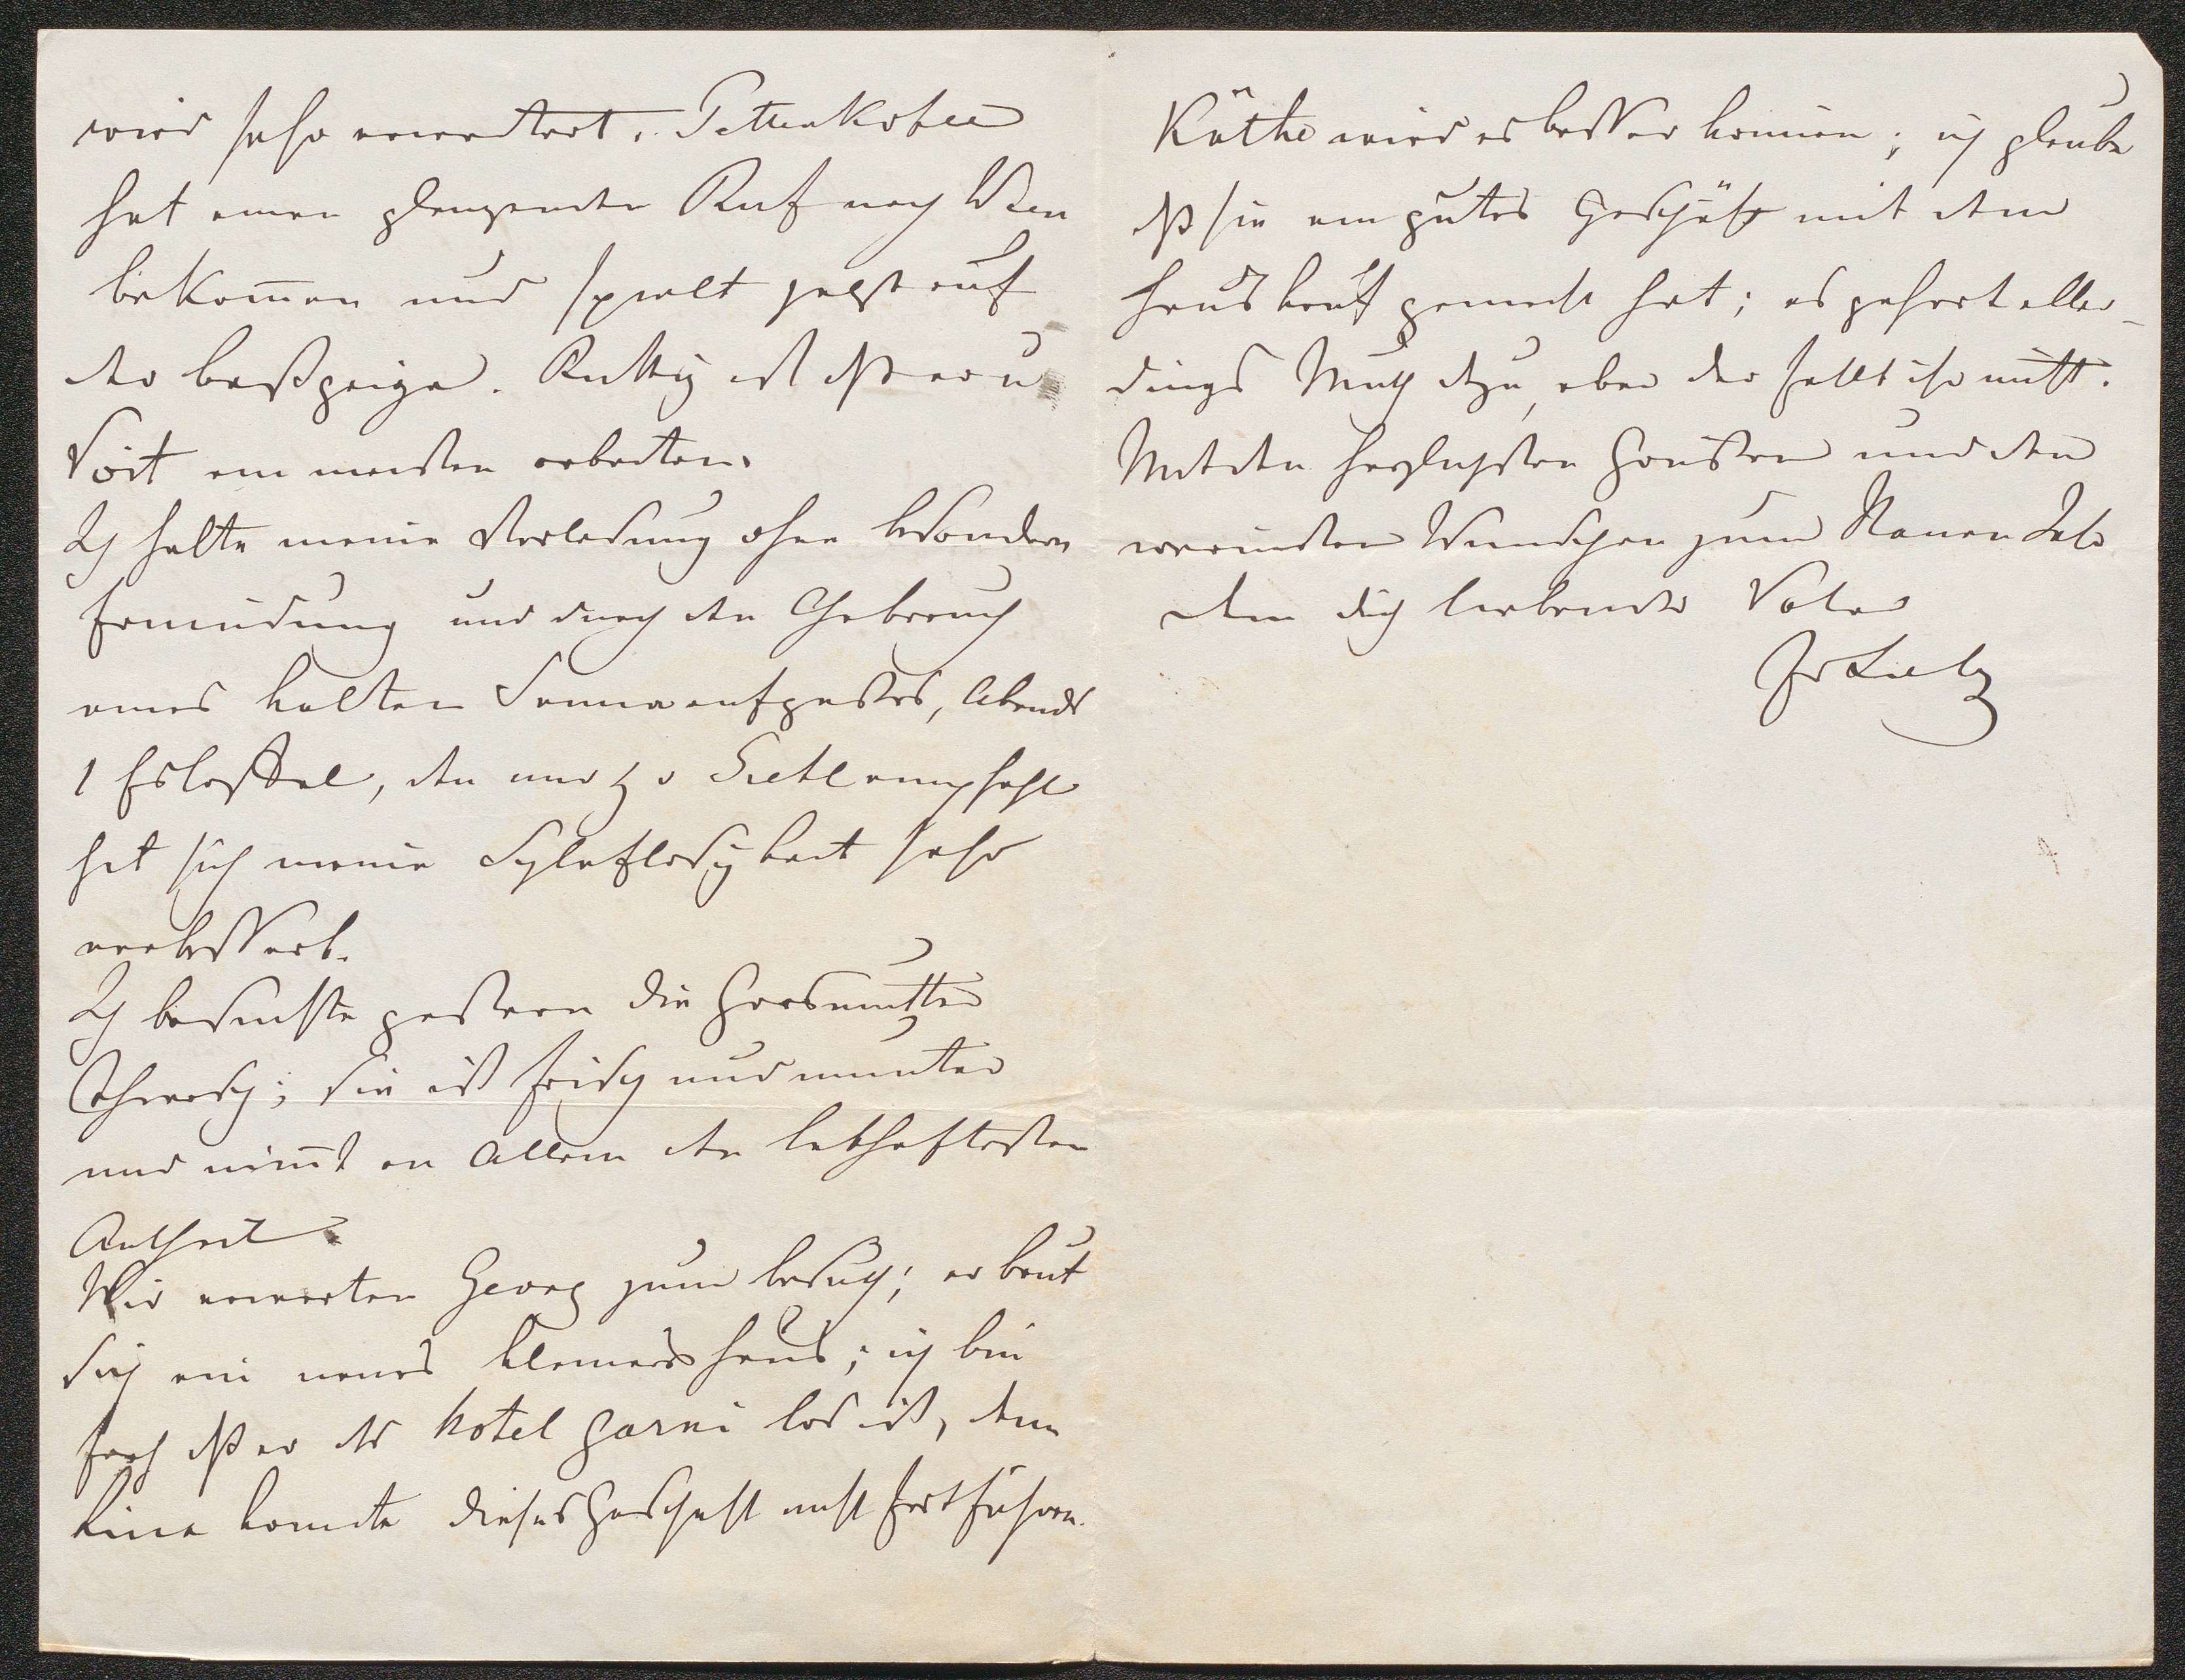 wird sehr erweitert. Pettenkofer
hat einen glänzenden Ruf nach Wien
bekom̄en und spielt jetzt auf
der Baßgeige. Richtig ist dß er u
Voit am meisten arbeiten.
Ich halte meine Vorlesung ohne besondere
Ermüdung und durch den Gebrauch
eines kalten Sennaaufgusses, Abends
1 Eslöffel, den mir H v Gietl empfahl
hat sich meine Schlaflosigkeit sehr
verbessert.
Ich besuchte gestern die Grosmutter
Thiersch; sie ist frisch und munter
und nim̄t an Allem den lebhaftesten
Antheil.
Wir erwarten Georg zum Besuch; er baut
sich ein neues kleineres Haus; ich bin
froh dß er das hotel garni los ist, denn
Lina konnte dieses Geschäft nicht fortführen.
Käthe wird es besser können; ich glaube
dß sie ein gutes Geschäft mit dem
Hauskauf gemacht hat; es gehört aller-
dings Muth dazu, aber der fehlt ihr nicht.
Mit den herzlichsten Grüssen und den
wärmsten Wünschen zum Neuen Jahr
Dein dich liebender Vater
Jr Liebig